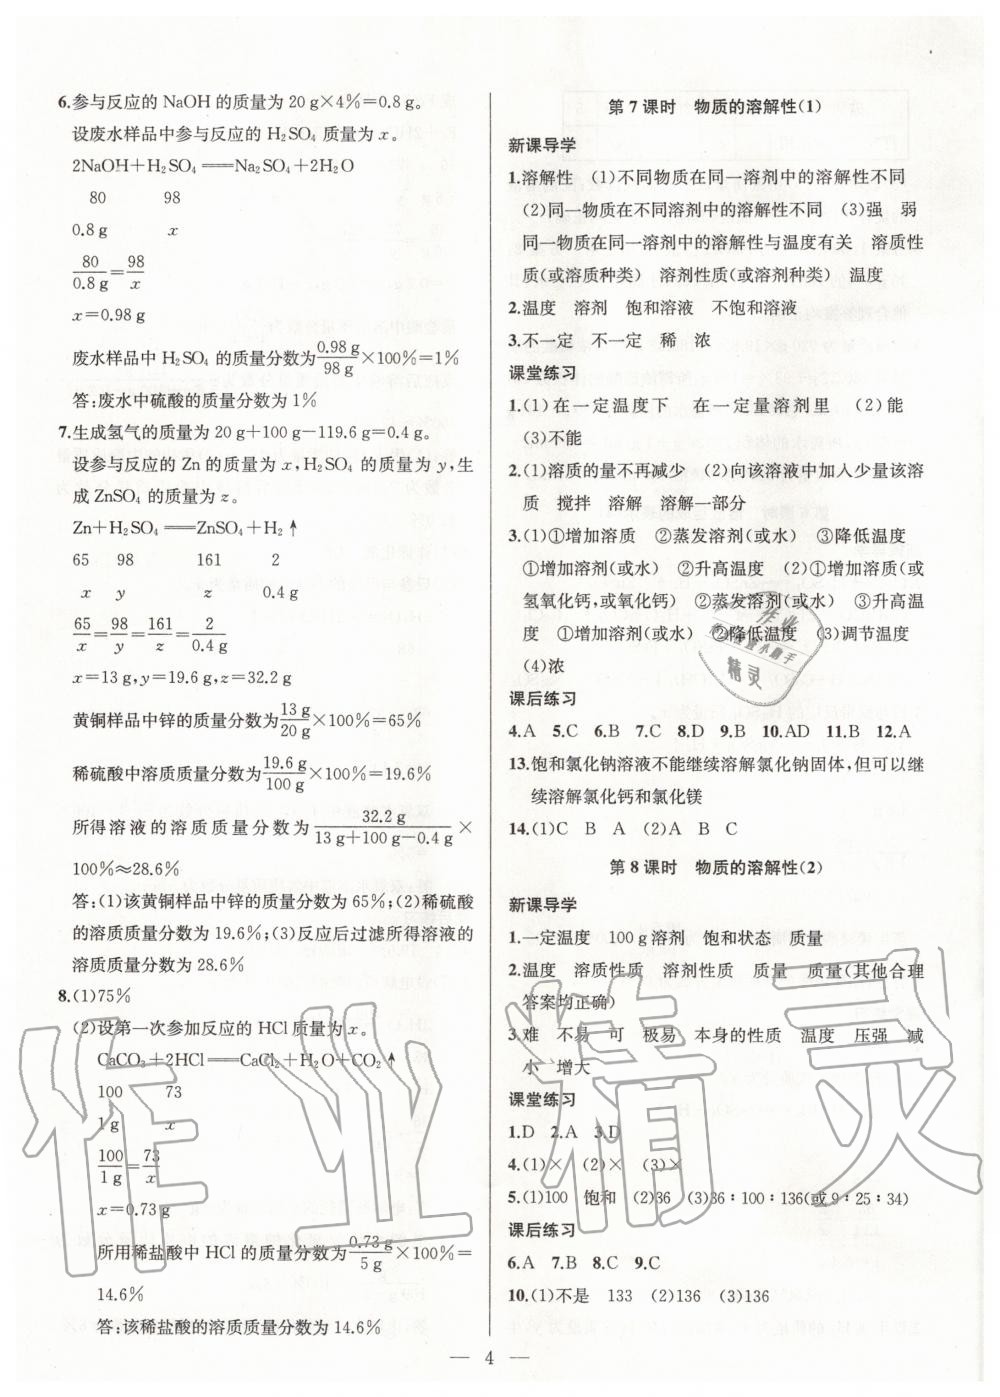 6.参与反应的 NaOH 的质量为 20 g×4%=0.8 g。
设废水样品中参与反应的 H₂SO₄ 质量为 x。
2NaOH+H₂SO₄══Na₂SO₄+2H₂O
80 98
0.8 g x
80/0.8 g=98/x
x=0.98 g
废水样品中 H₂SO₄ 的质量分数为0.98 g/98 g×100%=1%
答:废水中硫酸的质量分数为 1%
7.生成氢气的质量为 20 g+100 g-119.6 g=0.4 g。
设参与反应的 Zn 的质量为 x,H₂SO₄ 的质量为 y,生
成 ZnSO₄ 的质量为 z。
Zn+H₂SO₄══ZnSO₄+H₂↑
65 98 161 2
x y z 0.4 g
65/x=98/y=161/z=2/0.4 g
x=13 g,y=19.6 g,z=32.2 g
黄铜样品中锌的质量分数为13 g/20 g×100%=65%
稀硫酸中溶质质量分数为19.6 g/100 g×100%=19.6%
所得溶液的溶质质量分数为32.2 g/13 g+100 g-0.4 g×
100%≈28.6%
答:(1)该黄铜样品中锌的质量分数为 65%;(2)稀硫酸
的溶质质量分数为 19.6%;(3)反应后过滤所得溶液的
溶质质量分数为 28.6%
8.(1)75%
(2)设第一次参加反应的 HCl 质量为 x。
CaCO₃+2HCl══CaCl₂+H₂O+CO₂↑
100 73
1 g x
100/1 g=73/x
x=0.73 g
所用稀盐酸中 HCl 的质量分数为0.73 g/5 g×100%=
14.6%
答:该稀盐酸的溶质质量分数为 14.6%
第 7 课时 物质的溶解性(1)
新课导学
1.溶解性 (1)不同物质在同一溶剂中的溶解性不同
(2)同一物质在不同溶剂中的溶解性不同 (3)强 弱
同一物质在同一溶剂中的溶解性与温度有关 溶质性
质(或溶质种类) 溶剂性质(或溶剂种类) 温度
2.温度 溶剂 饱和溶液 不饱和溶液
3.不一定 不一定 稀 浓
课堂练习
1.(1)在一定温度下 在一定量溶剂里 (2)能
(3)不能
2.(1)溶质的量不再减少 (2)向该溶液中加入少量该溶
质 搅拌 溶解 溶解一部分
3.(1)①增加溶质 ②蒸发溶剂(或水) ③降低温度
①增加溶剂(或水) ②升高温度 (2)①增加溶质(或
氢氧化钙,或氧化钙) ②蒸发溶剂(或水) ③升高温
度 ①增加溶剂(或水) ②降低温度 (3)调节温度
(4)浓
课后练习
4.A 5.C 6.B 7.C 8.D 9.B 10.AD 11.B 12.A
13.饱和氯化钠溶液不能继续溶解氯化钠固体,但可以继
续溶解氯化钙和氯化镁
14.(1)C B A (2)A B C
第 8 课时 物质的溶解性(2)
新课导学
1.一定温度 100 g溶剂 饱和状态 质量
2.温度 溶质性质 溶剂性质 质量 质量(其他合理
答案均正确)
3.难 不易 可 极易 本身的性质 温度 压强 减
小 增大
课堂练习
1.D 2.A 3.D
4.(1)× (2)× (3)×
5.(1)100 饱和 (2)36 (3)36∶100∶136(或 9∶25∶34)
课后练习
6.A 7.B 8.C 9.C
10.(1)不是 133 (2)136 (3)136
— 4 —
作业精灵
作业
精灵